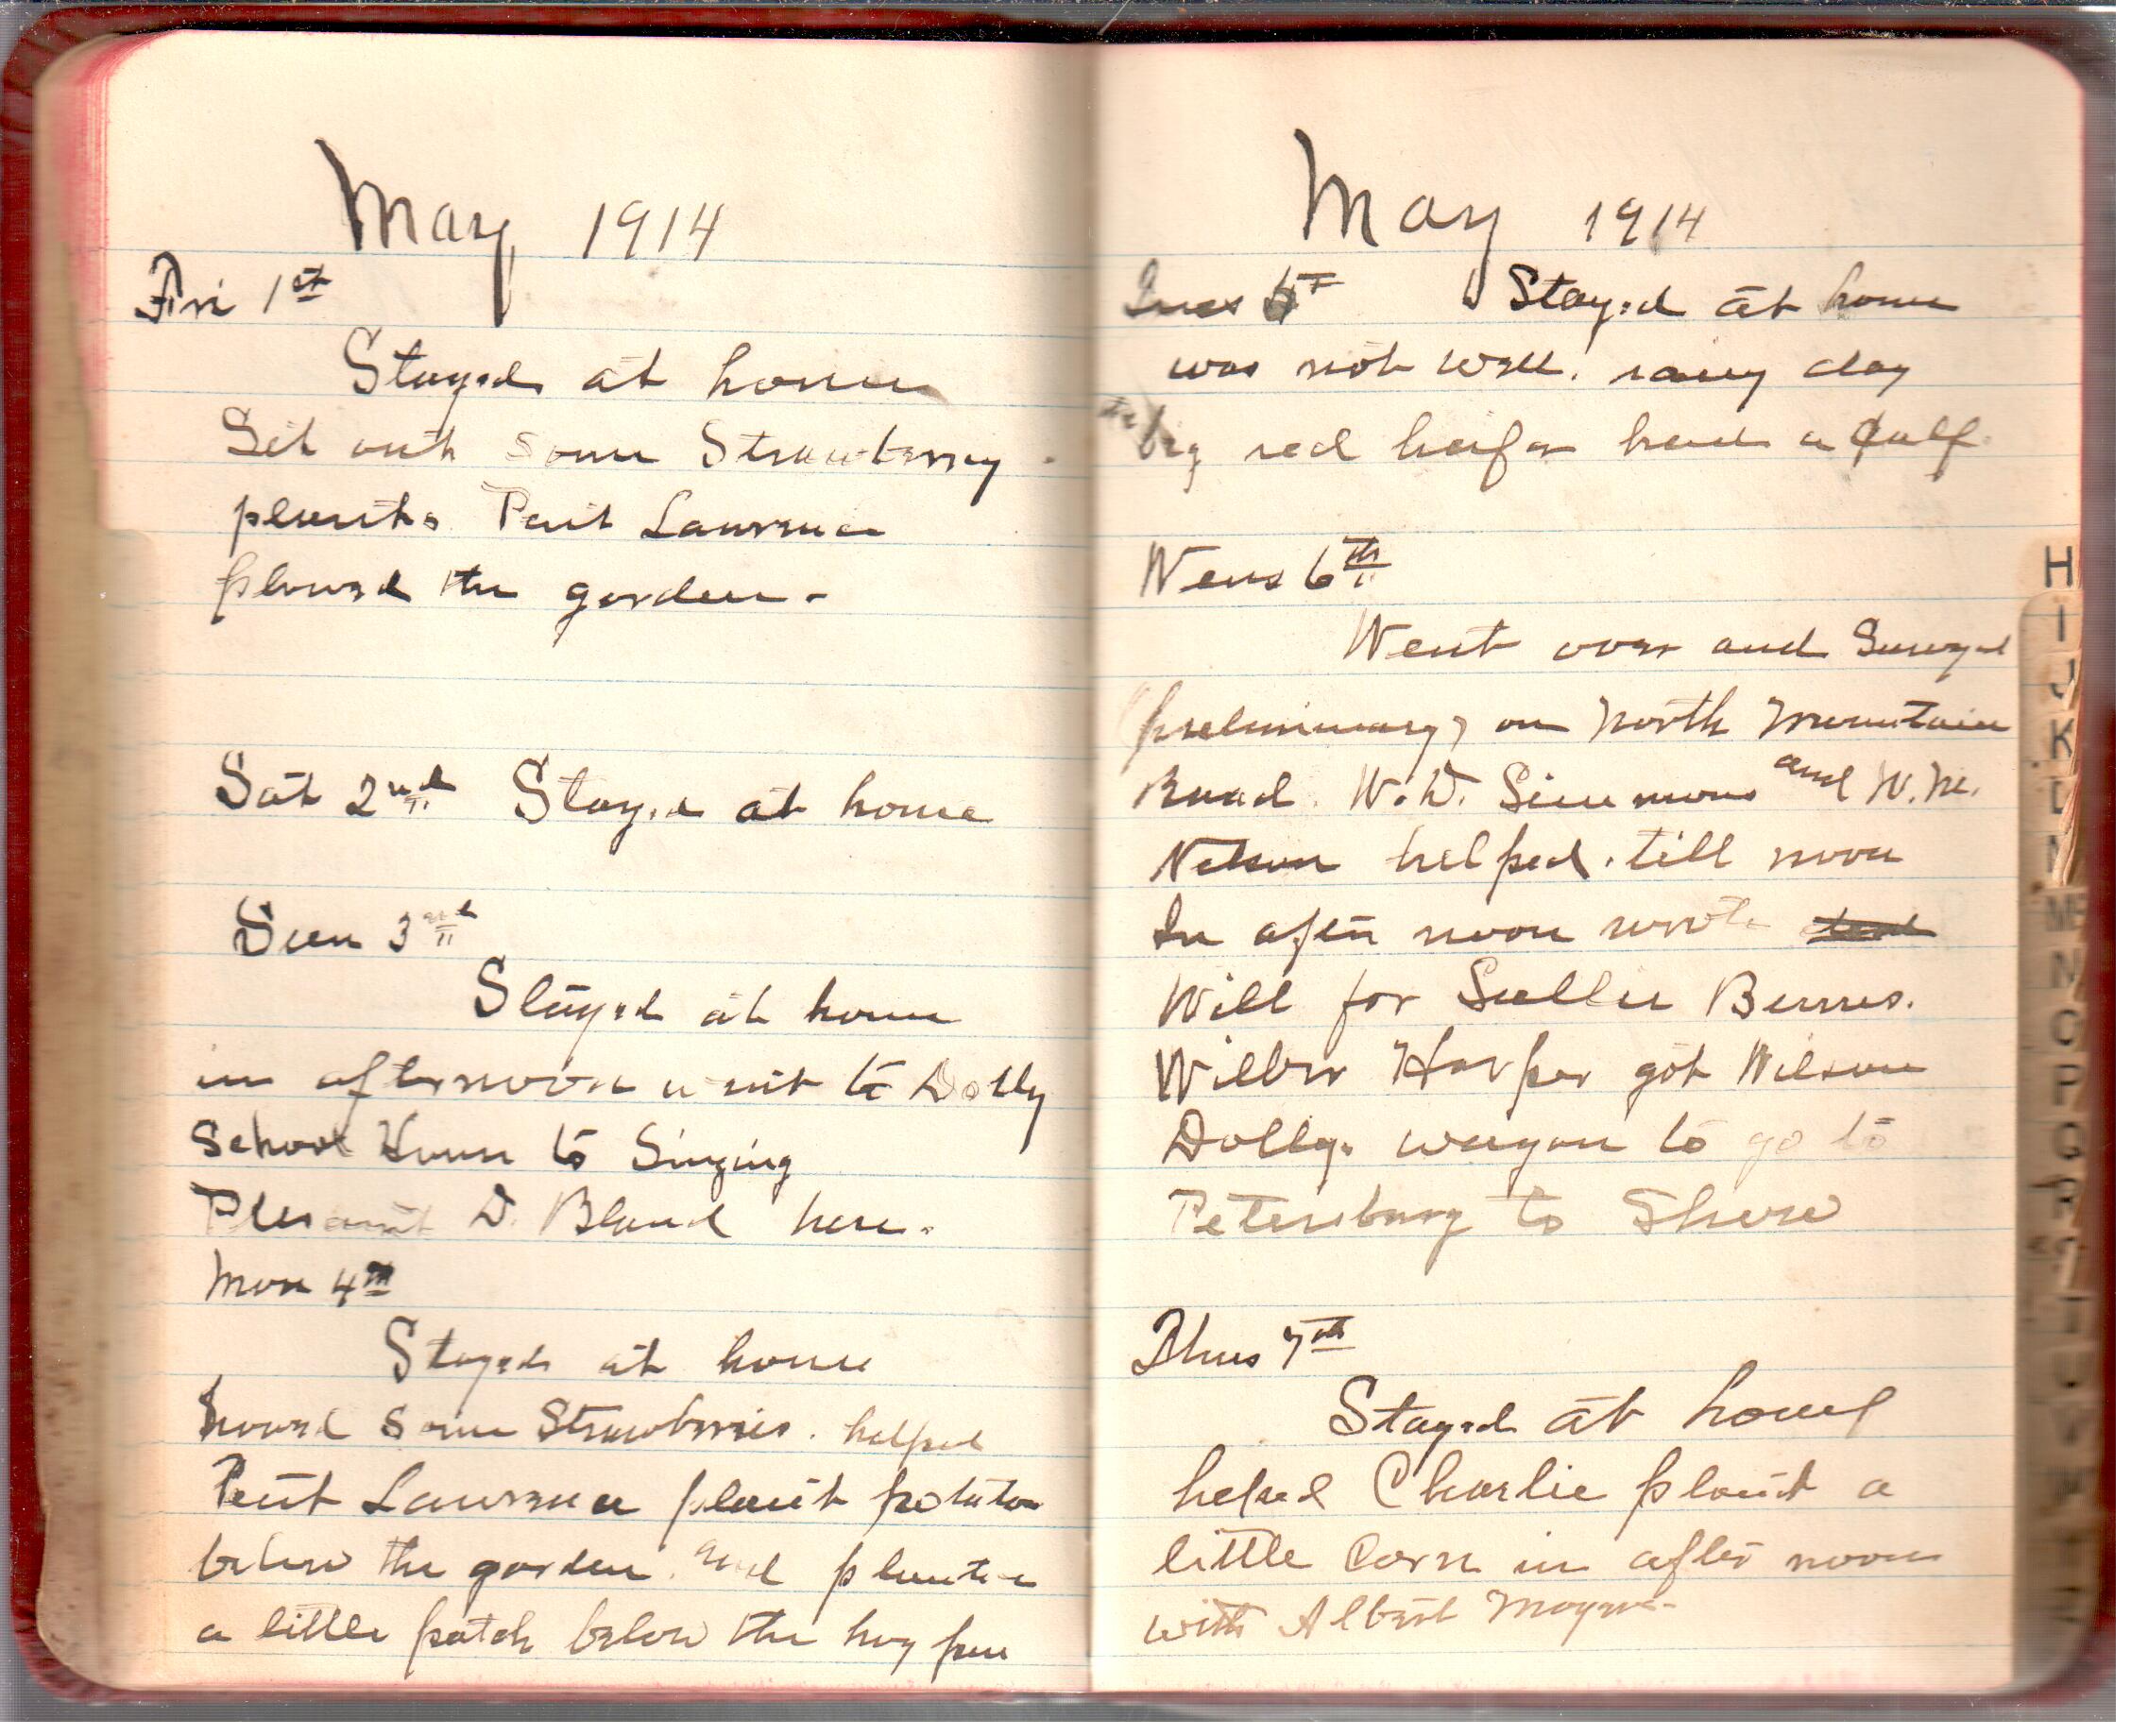 May 1914
Fri 1st
Stayed at home
Set out some Strawberry
plants Peut Lawrence
plowed the garden -
Sat 2nd Stayed at home
Sun 3rd
Stayed at home
in afternoon went to Dolly
School House to Singing
Plesant D. Bland here.
Mon 4th
Stayed at home
howed some Strawberries. helped
Peut Lawrence plant potatoe
below the garden. and planted
a little patch below the hog pen
May 1914
Tues 5th Stayed at home
was not well. rainy day
the big red heifer had a Calf
Wens 6th
Went over and Surveyed
(preliminary) on North Mountain
Road. W.D. Simmons and W.M.
Nelson helped. till noon
In after noon wrote
Will for Berres.
Wilber Harper got Wilson
Dollys wagon to go to
Petersburg to Show
Thus 7th
Stayed at home
helped Charlie plant a
little Corn in after noon
with Albert
H
I
J
K
L
M
N
O
P
Q
R
T
U
V
W